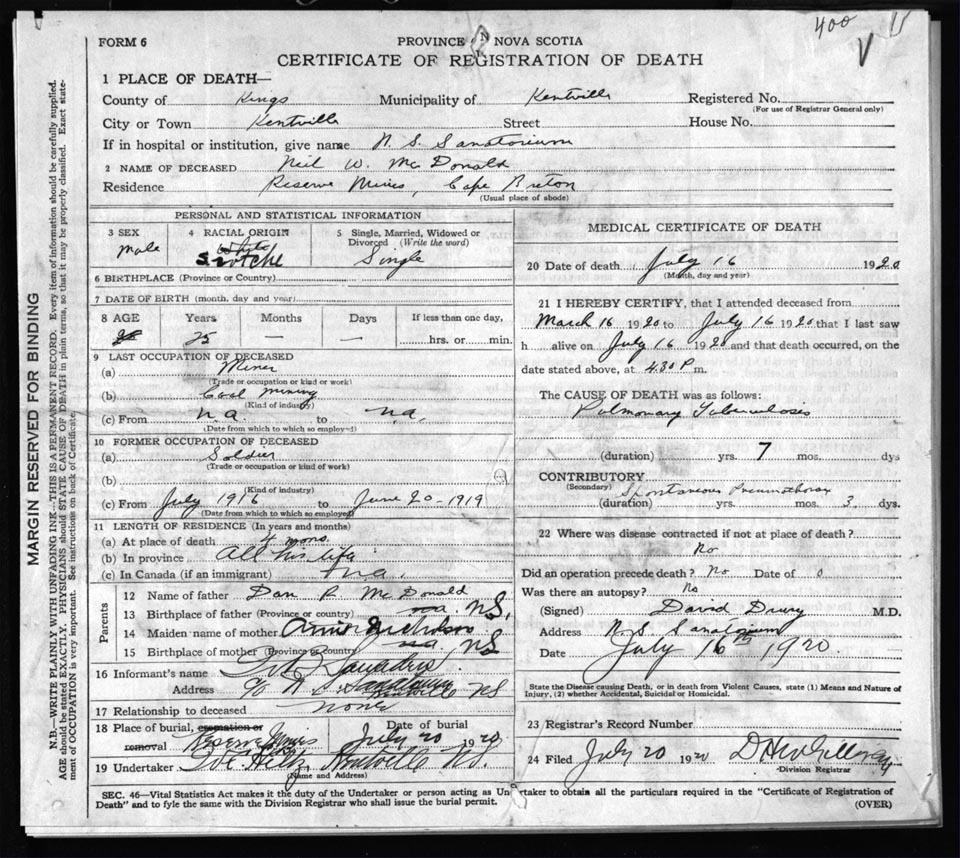 400 V
V
FORM 6
PROVINCE OF NOVA SCOTIA
CERTIFICATE OF REGISTRATION OF DEATH
1 PLACE OF DEATH—
County of Kings Municipality of Kentville Registered No.
(For use of Registrar General only)
City or Town Kentville Street House No.
If in hospital or institution, give name N. S. Sanatorium
2 NAME OF DECEASED Neil W. McDonald
Residence Reserve Mines, Cape Breton
(Usual place of abode)
PERSONAL AND STATISTICAL INFORMATION
3 SEX 4 RACIAL ORIGIN 5 Single, Married, Widowed or Divorced (Write the word)
Male White Scotche Single
6 BIRTHPLACE (Province or Country)
7 DATE OF BIRTH (month, day and year)
8 AGE Years Months Days If less than one day,
25 — — hrs. or min.
9 LAST OCCUPATION OF DECEASED
(a) Miner
(Trade or occupation or kind or work)
(b) Coal mining
(Kind of industry)
(c) From n.a. to n.a.
(Date from which to which so employed)
10 FORMER OCCUPATION OF DECEASED
(a) Soldier
(Trade or occupation or kind of work)
(b)
(Kind of industry)
(c) From July 1916 to June 20-1919
(Date from which to which so employed)
11 LENGTH OF RESIDENCE (In years and months)
(a) At place of death 4 mons.
(b) In province All his life
(c) In Canada (if an immigrant) n.a.
Parents
12 Name of father Dan R. McDonald
13 Birthplace of father (Province or country) N.S.
14 Maiden name of mother Annie Nicholson
15 Birthplace of mother (Province or country) NS
16 Informant's name
Address c/o N.S. NS
17 Relationship to deceased none
18 Place of burial, cremation or removal Reserve Mines Date of burial July 20 1920
19 Undertaker Kentville N.S.
(Name and Address)
MEDICAL CERTIFICATE OF DEATH
20 Date of death July 16 1920
(Month, day and year)
21 I HEREBY CERTIFY, that I attended deceased from
March 16 1920 to July 16 1920 that I last saw
h alive on July 16 1920 and that death occurred, on the
date stated above, at 4.30 P.m.
The CAUSE OF DEATH was as follows:
Pulmonary Tuberculosis
(duration) yrs. 7 mos. dys
CONTRIBUTORY Spontaneous Pneumothorax
(Secondary)
(duration) yrs. mos. 3 dys.
22 Where was disease contracted if not at place of death?
No
Did an operation precede death? No Date of 0
Was there an autopsy? No
(Signed) David Drury M.D.
Address N.S. Sanatorium
Date July 16th 1920.
State the Disease causing Death, or in death from Violent Causes, state (1) Means and Nature of
Injury, (2) whether Accidental, Suicidal or Homicidal.
23 Registrar's Record Number
24 Filed July 20 1920
Division Registrar
SEC. 46—Vital Statistics Act makes it the duty of the Undertaker or person acting as Undertaker to obtain all the particulars required in the "Certificate of Registration of
Death" and to fyle the same with the Division Registrar who shall issue the burial permit.
(OVER)
MARGIN RESERVED FOR BINDING
N.B.—WRITE PLAINLY WITH UNFADING INK—THIS IS A PERMANENT RECORD. Every item of information should be carefully supplied.
AGE should be stated EXACTLY. PHYSICIANS should STATE CAUSE OF DEATH in plain terms, so that it may be properly classified. Exact state-
ment of OCCUPATION is very important. See instructions on back of Certificate.